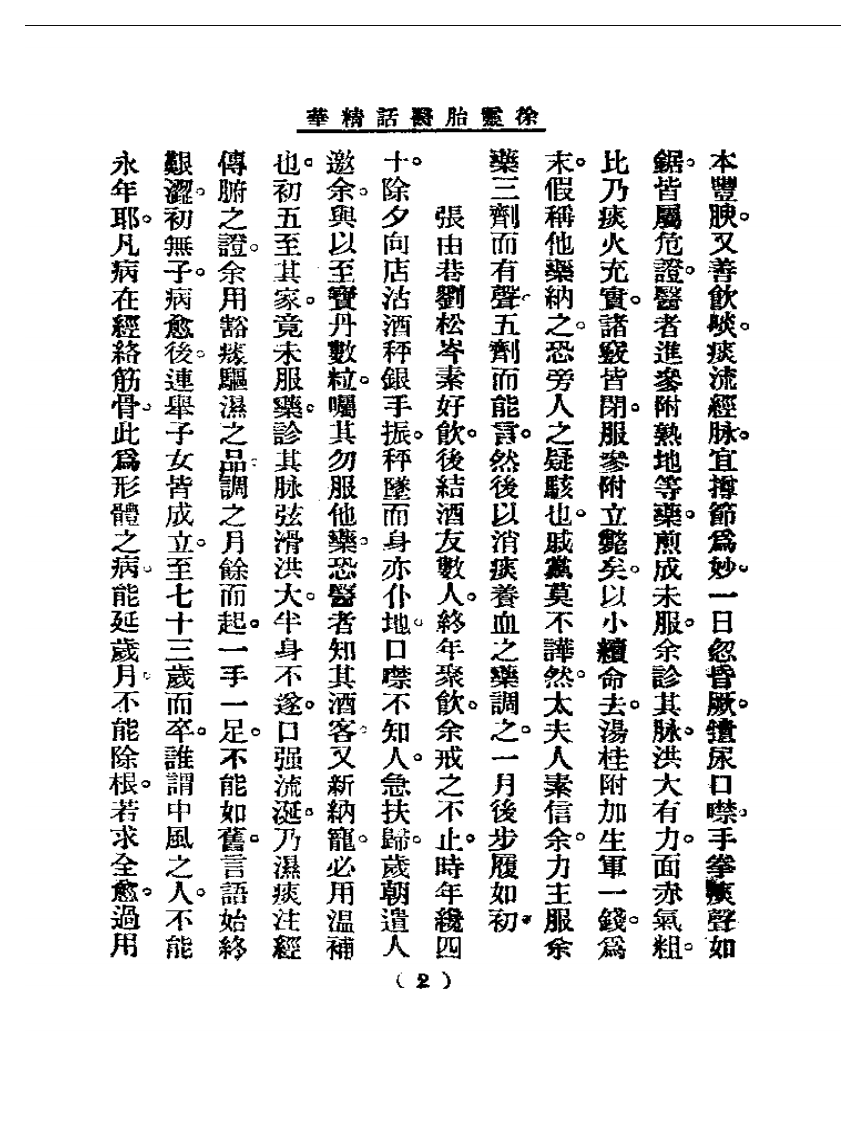 徐靈胎醫話精華
本豐腴。又善飲啖。痰流經脉。宜撙節爲妙。一日忽昏厥。遺尿口噤。手拳痰聲如
鋸。皆屬危證。醫者進參附熟地等藥。煎成未服。余診其脉。洪大有力。面赤氣粗。
比乃痰火充實。諸竅皆閉。服參附立斃矣。以小續命去。湯桂附加生軍一錢。爲
末。假稱他藥納之。恐旁人之疑駭也。戚黨莫不譁然。太夫人素信余。力主服余
藥三劑而有聲。五劑而能言。然後以消痰養血之藥調之。一月後步履如初。
張由巷劉松岑素好飲。後結酒友數人。終年聚飲。余戒之不止。時年纔四
十。除夕向店沽酒秤銀手振。秤墜而身亦仆地。口噤不知人。急扶歸。歲朝遣人
邀余。與以至寶丹數粒。囑其勿服他藥。恐醫者知其酒客。又新納寵。必用温補
也。初五至其家。竟未服藥。診其脉弦滑洪大。半身不遂。口强流涎。乃濕痰注經
傳腑之證。余用豁痰驅濕之品。調之月餘而起。一手一足。不能如舊。言語始終
艱澀。初無子。病愈後。連舉子女皆成立。至七十三歲而卒。誰謂中風之人。不能
永年耶。凡病在經絡筋骨。此爲形體之病。能延歲月。不能除根。若求全愈。過用
（2）